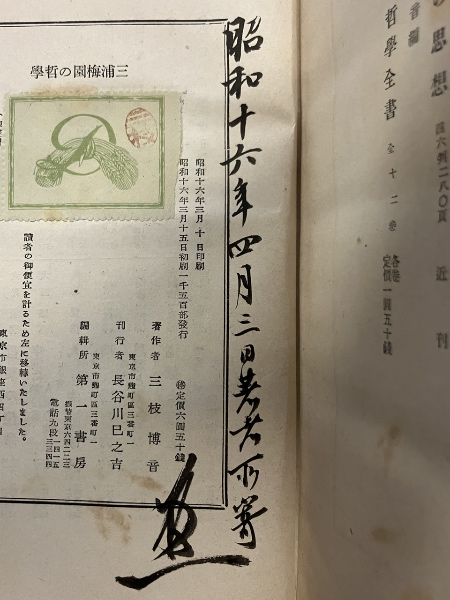 の思想 四六判二八〇頁 近刊
哲學全書 全十二卷 各卷定價一圓五十錢
昭和十六年四月三日著者所寄
三浦梅園の哲學
昭和十六年三月十日印刷
昭和十六年三月十五日初刷一千五百部發行
定價六圓五十錢
著作者 三枝博音
東京市麴町區三番町一
刊行者 長谷川巳之吉
東京市麴町區三番町一
編輯所 第一書房
電話九段
振替東京六四二二三
讀者の御便宜を計るため左に移轉いたしました。
東京市銀座西四丁目